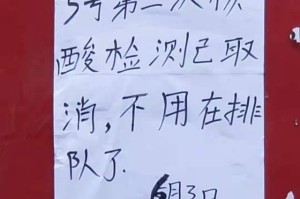 5号第二次核
酸检测已取
消,不用在排
队了.
6月3日